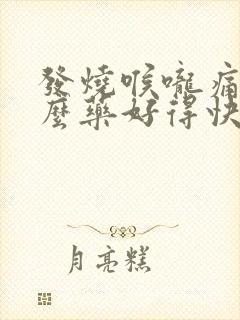 發燒喉嚨痛
麼藥好得快
月亮糕